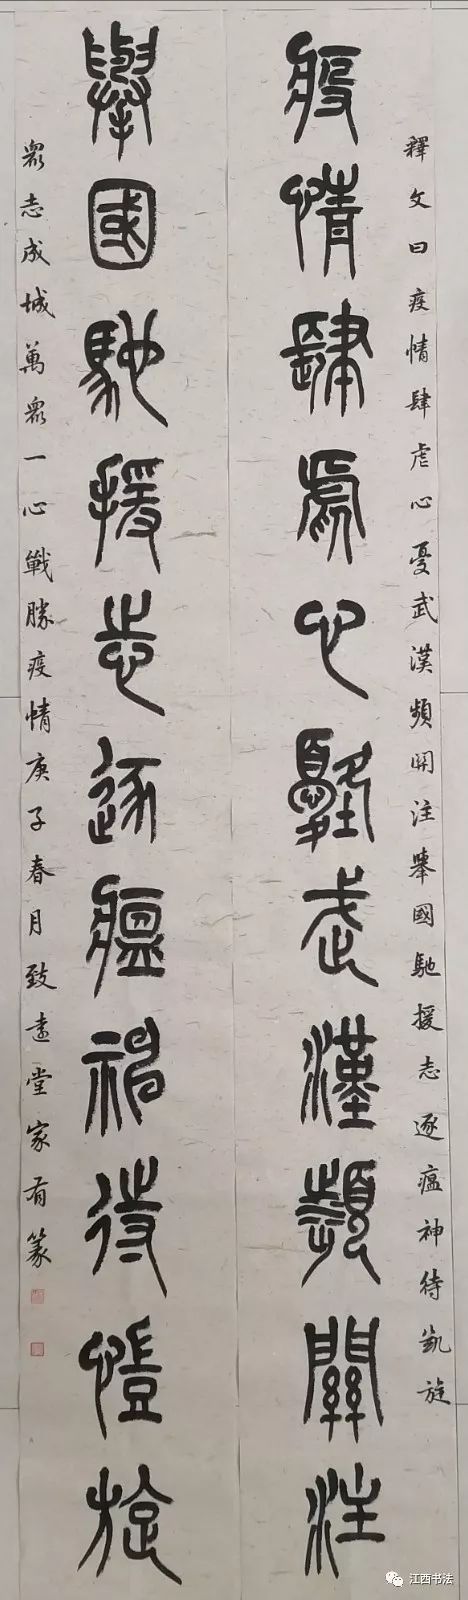 釋文曰疫情肆虐心憂武漢頻関注舉國馳援志逐瘟神待凱旋
疫情肆虐心憂武漢頻關注
舉國馳援志逐瘟神待愷旋
眾志成城萬眾一心戰勝疫情庚子春月致遠堂家有篆
江西书法